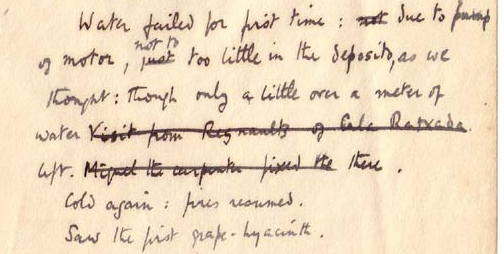 Water failed for first time : not due to pump
of motor, just not to too little in the deposito, as we
thought: though only a little over a meter of
water Visit from Regnaults of Cala Ratxada.
left. Miguel the carpenter fixed the there.
Cold again : fires resumed.
Saw the first grape-hyacinth.